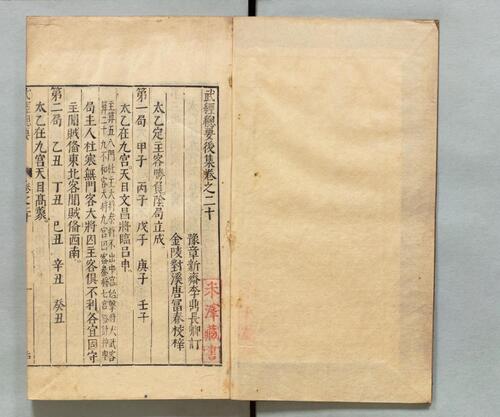 武經總要後集卷之二十
豫章新齋李鼎長卿訂
金陵對溪唐富春校梓
太乙定主客勝負陰局立成
第一局 甲子 丙子 戊子 庚子 壬子
太乙在九宫天目文昌將臨吕申
局主人杜塞無門客大將囚主客俱不利各宜固守
主聞賊偹東北客聞賊偹西南
第二局 乙丑 丁丑 巳丑 辛丑 癸丑
太乙在九宫天目高叢
武經總要
卷之二十
朱澤藏書